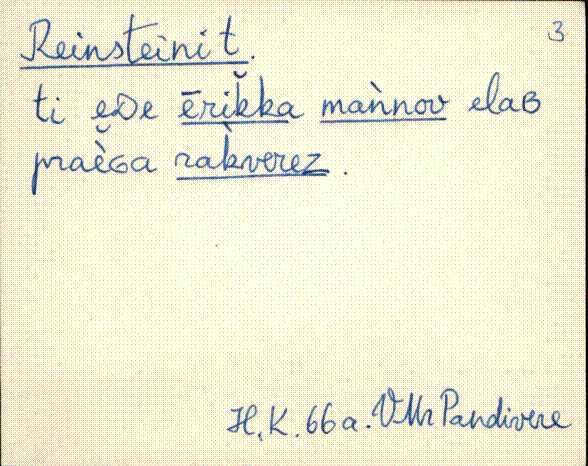 Reinsteini t.
3
ti eDe ērik̆ka mаǹnov elaB
praèGa rak̀verez.
H.K. 66 a. VMr Pandivere